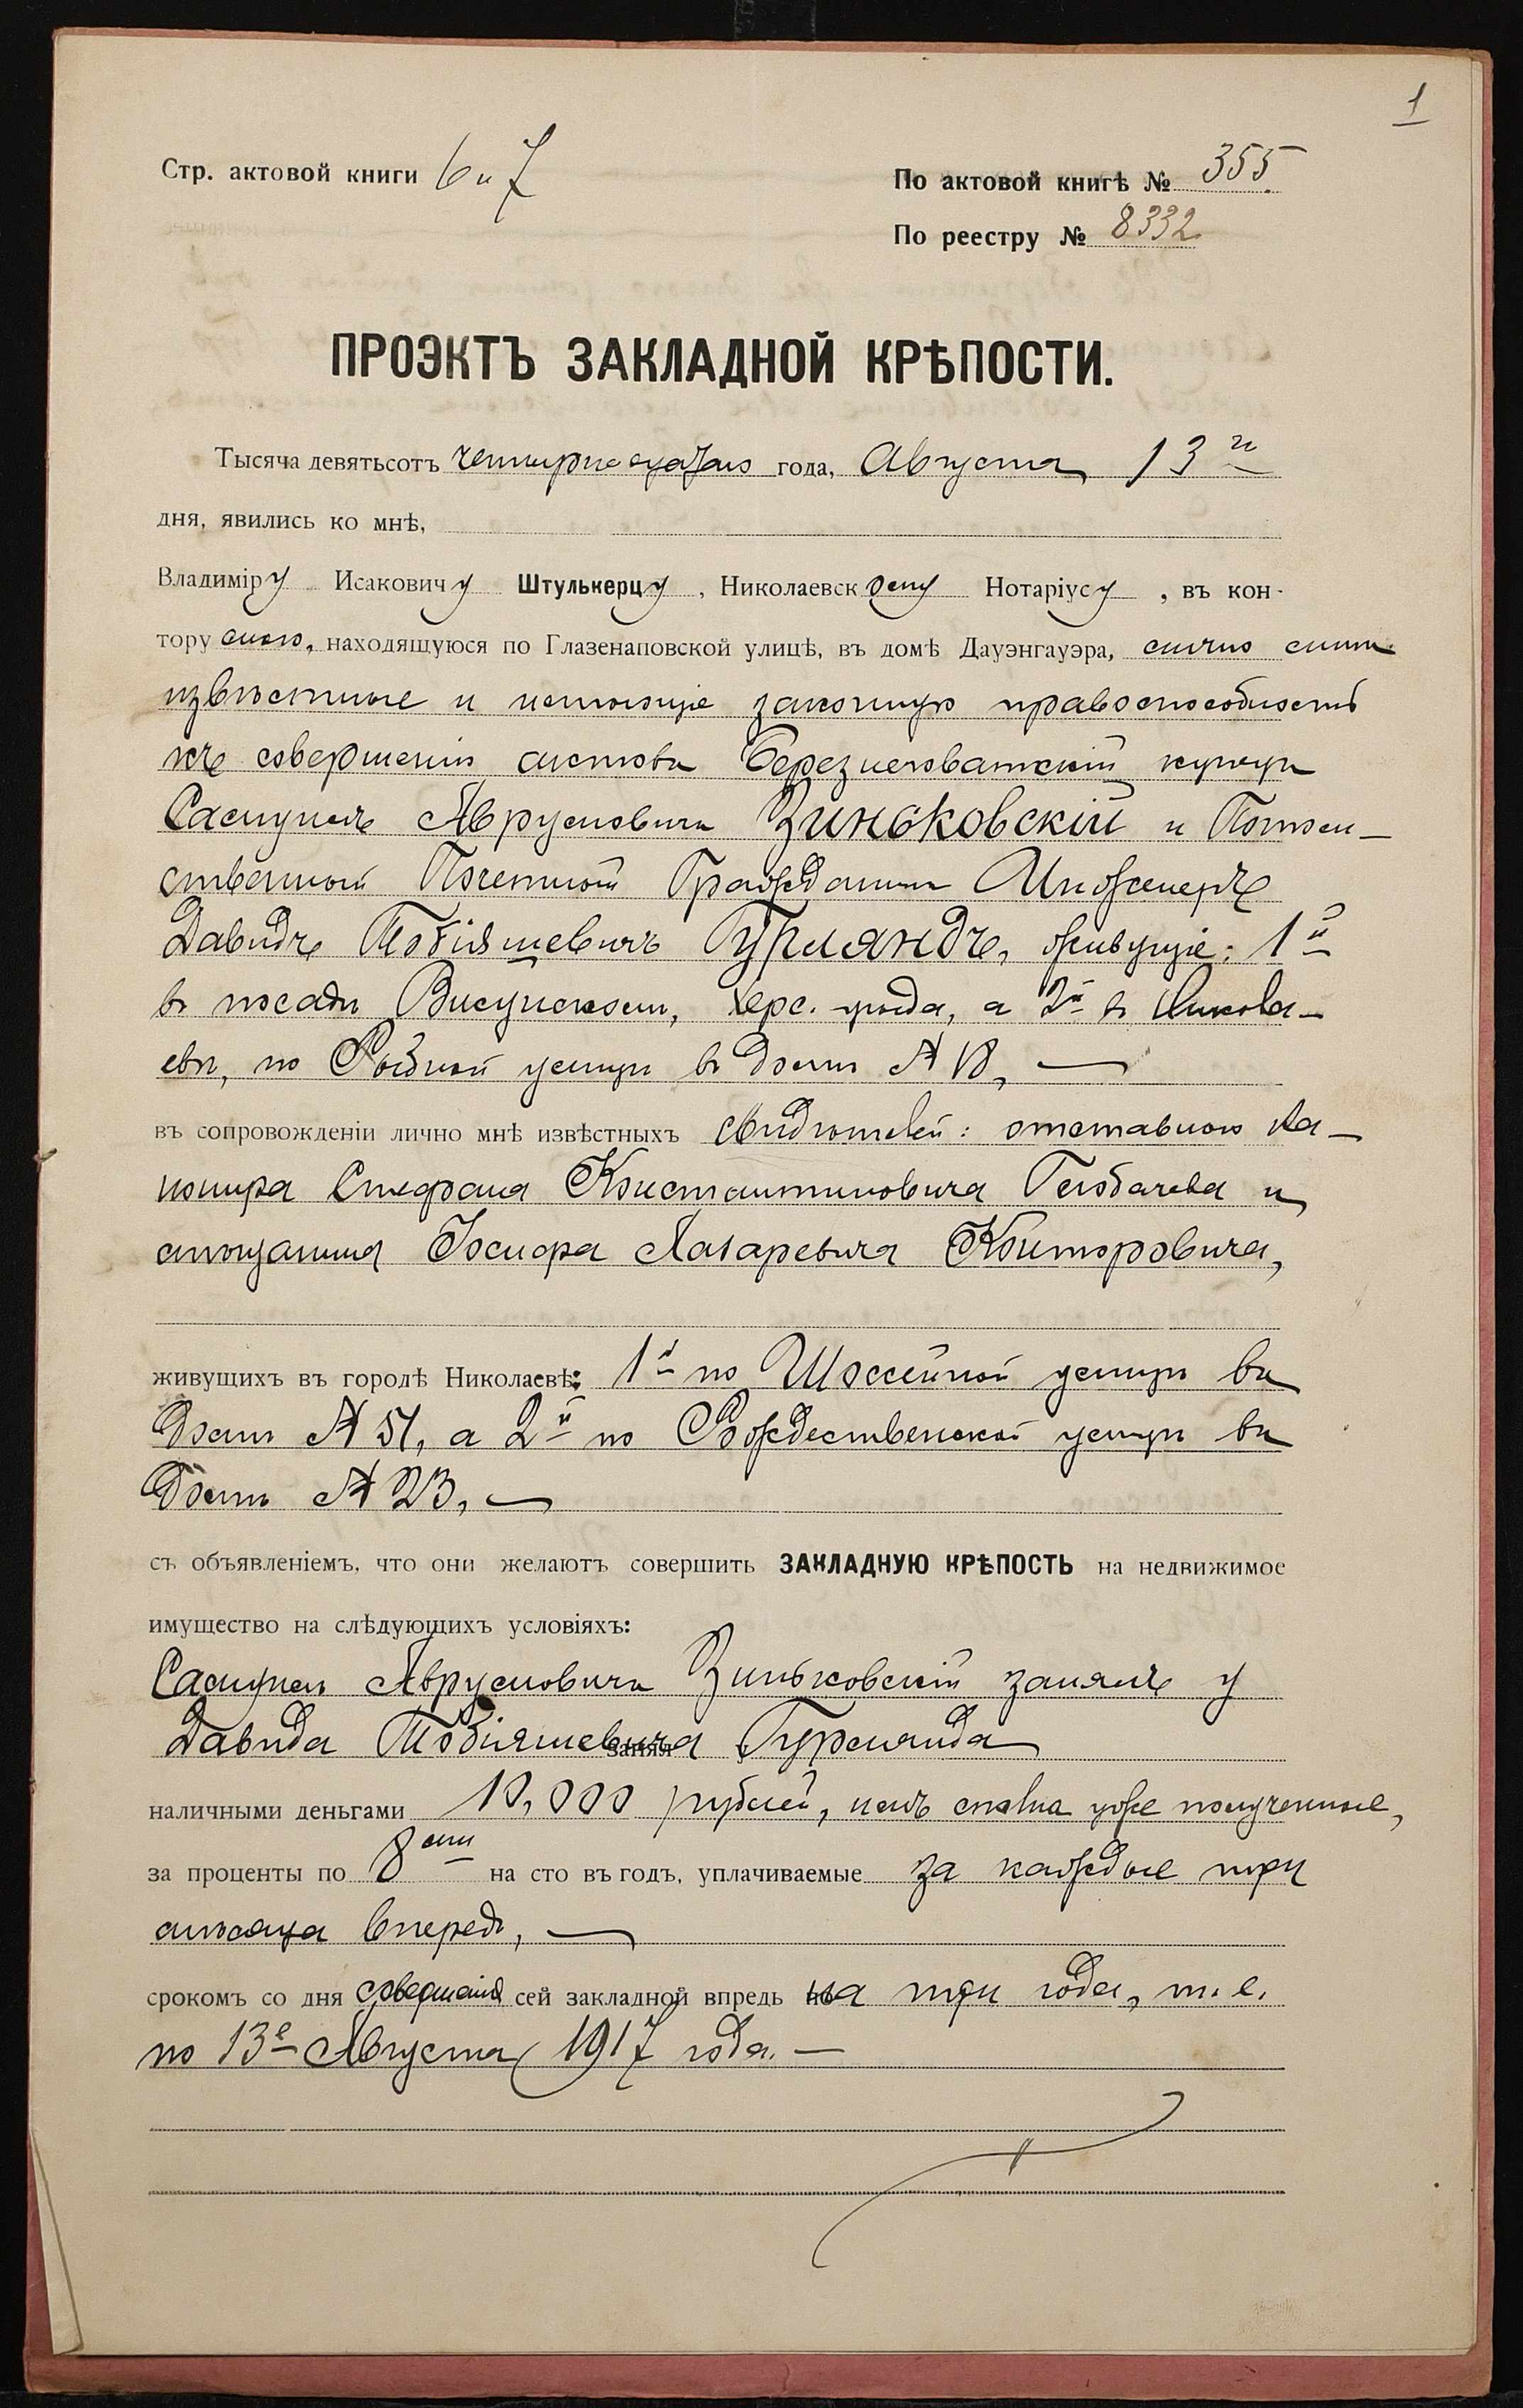 1
Стр. актовой книги 6 и 7
По актовой книгѣ № 355.
По реестру № 8332
ПРОЭКТЪ ЗАКЛАДНОЙ КРѢПОСТИ.
Тысяча девятьсотъ четырнадцатаго года, Августа 13 го
дня, явились ко мнѣ,
Владиміру Исаковичу Штулькерцу, Николаевскому Нотаріусу, въ кон-
тору мою, находящуюся по Глазенаповской улицѣ, въ домѣ Дауэнгауэра, лично мнѣ
извѣстные и имѣющіе законную правоспособность
къ совершенію актовъ Березнеговатскій купецъ
Самуилъ Аврумовичъ Зиньковскій и Потом-
ственный Почетный Гражданинъ Инженеръ
Давидъ Тобіяшевичъ Гурляндъ, живущіе: 1й
въ посадѣ Висунскомъ, Херс. уѣзда, а 2й въ Никола-
евѣ, по Рыбной улицѣ въ домѣ № 18, —
въ сопровожденіи лично мнѣ извѣстныхъ свидѣтелей: отставного ка-
нонира Стефана Константиновича Голобачева и
мѣщанина Іосифа Лазаревича Канторовича,
живущихъ въ городѣ Николаевѣ: 1й по Шоссейной улицѣ въ
домѣ № 51, а 2й по Рождественской улицѣ въ
домѣ № 23, —
съ объявленіемъ, что они желаютъ совершить ЗАКЛАДНУЮ КРѢПОСТЬ на недвижимое
имущество на слѣдующихъ условіяхъ:
Самуилъ Аврумовичъ Зиньковскій занялъ у
Давида Тобіяшевича Гурлянда
наличными деньгами 10,000 рублей, имъ сполна уже полученные,
за проценты по 8ми на сто въ годъ, уплачиваемые за каждые три
мѣсяца впередъ, —
срокомъ со дня совершенія сей закладной впредь на три года, т. е.
по 13е Августа 1917 года. —